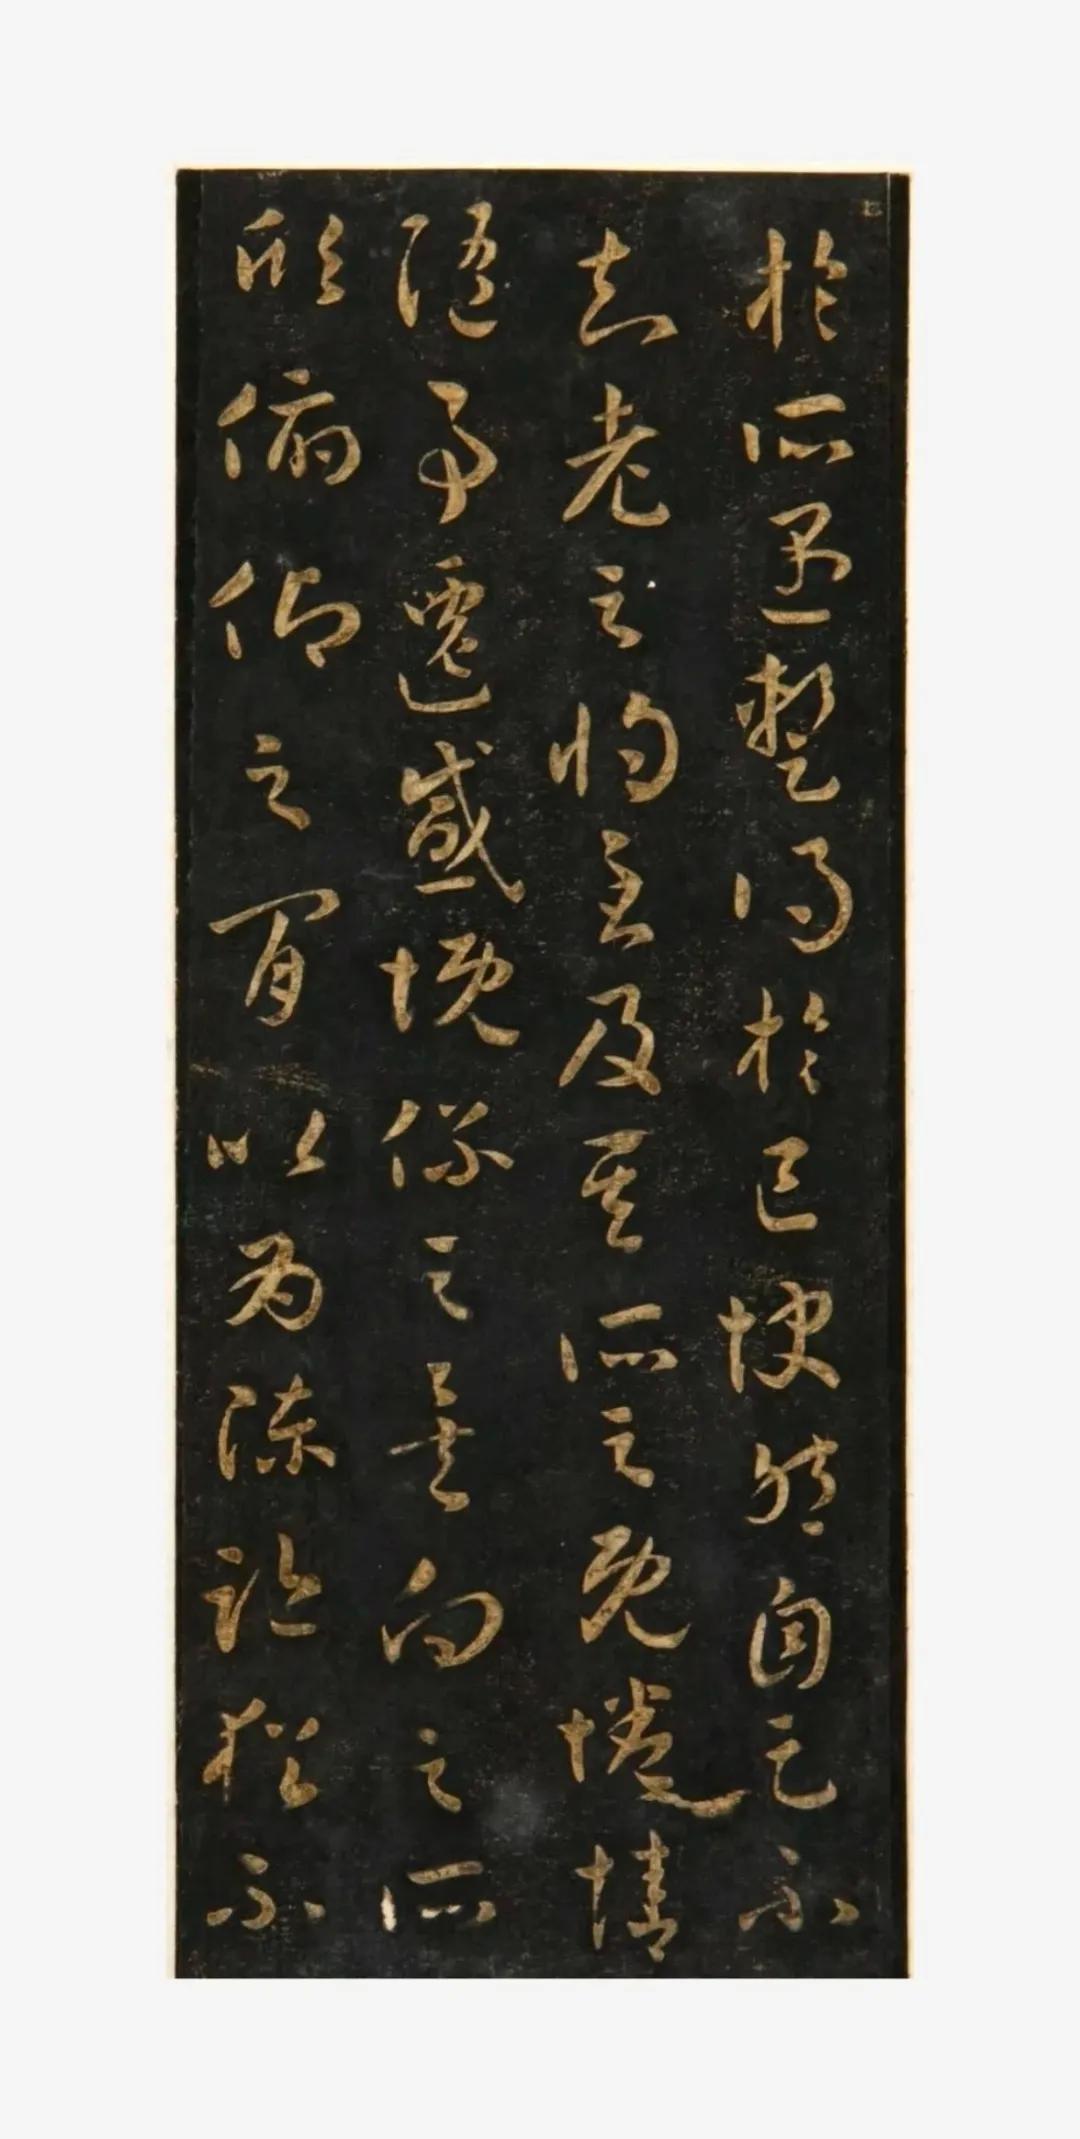 於所遇暫得於己快然自足不
知老之將至及其所之既惓情
隨事遷感慨係之矣向之所
欣俯仰之間以為陳迹猶不